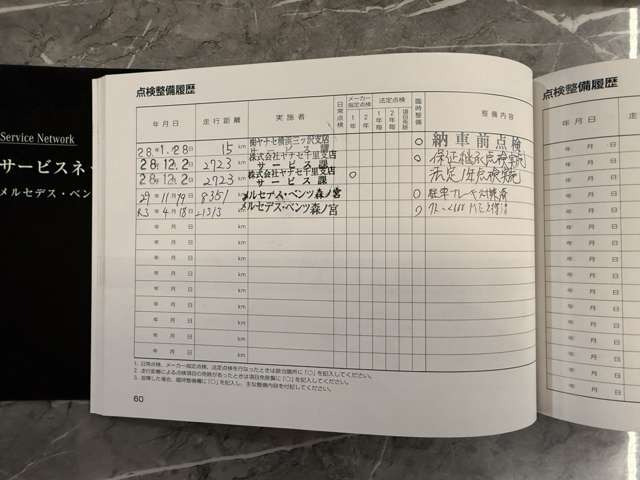 Service Network
サービスネ
メルセデス・ベン
点検整備履歴
年月日 走行距離 実施者 日常点検 メーカー指定点検 1年 2年 法定点検 1年毎 2年毎 臨時整備 整備内容
28年1月28日 15 km ㈱ヤナセ横浜三ッ沢支店 サービス課 ○ 納車前点検
28年12月2日 2723 km 株式会社ヤナセ千里支店 サービス課 ○ 保証継承点検実施
28年12月2日 2723 km 株式会社ヤナセ千里支店 サービス課 ○ 法定1年点検実施
29年11月19日 8351 km メルセデス・ベンツ森ノ宮 ○ 駐車ブレーキ
R3年4月18日 km メルセデス・ベンツ森ノ宮 ○
年月日 km
年月日 km
年月日 km
年月日 km
年月日 km
年月日 km
年月日 km
年月日 km
年月日 km
1. 日常点検、メーカー指定点検、法定点検を行なったときは該当箇所に「○」を記入してください。
2. 走行距離による点検項目の免除があったときは項目免除欄に「○」を記入してください。
3. 故障した場合、臨時整備欄に「○」を記入し、主な整備内容を付記してください。
60
点検整備履歴
年月日 走行距
年月日
年月日
年月日
年月日
年月日
年月日
年月日
年月日
年月日
年月日
年月日
年月日
年月日